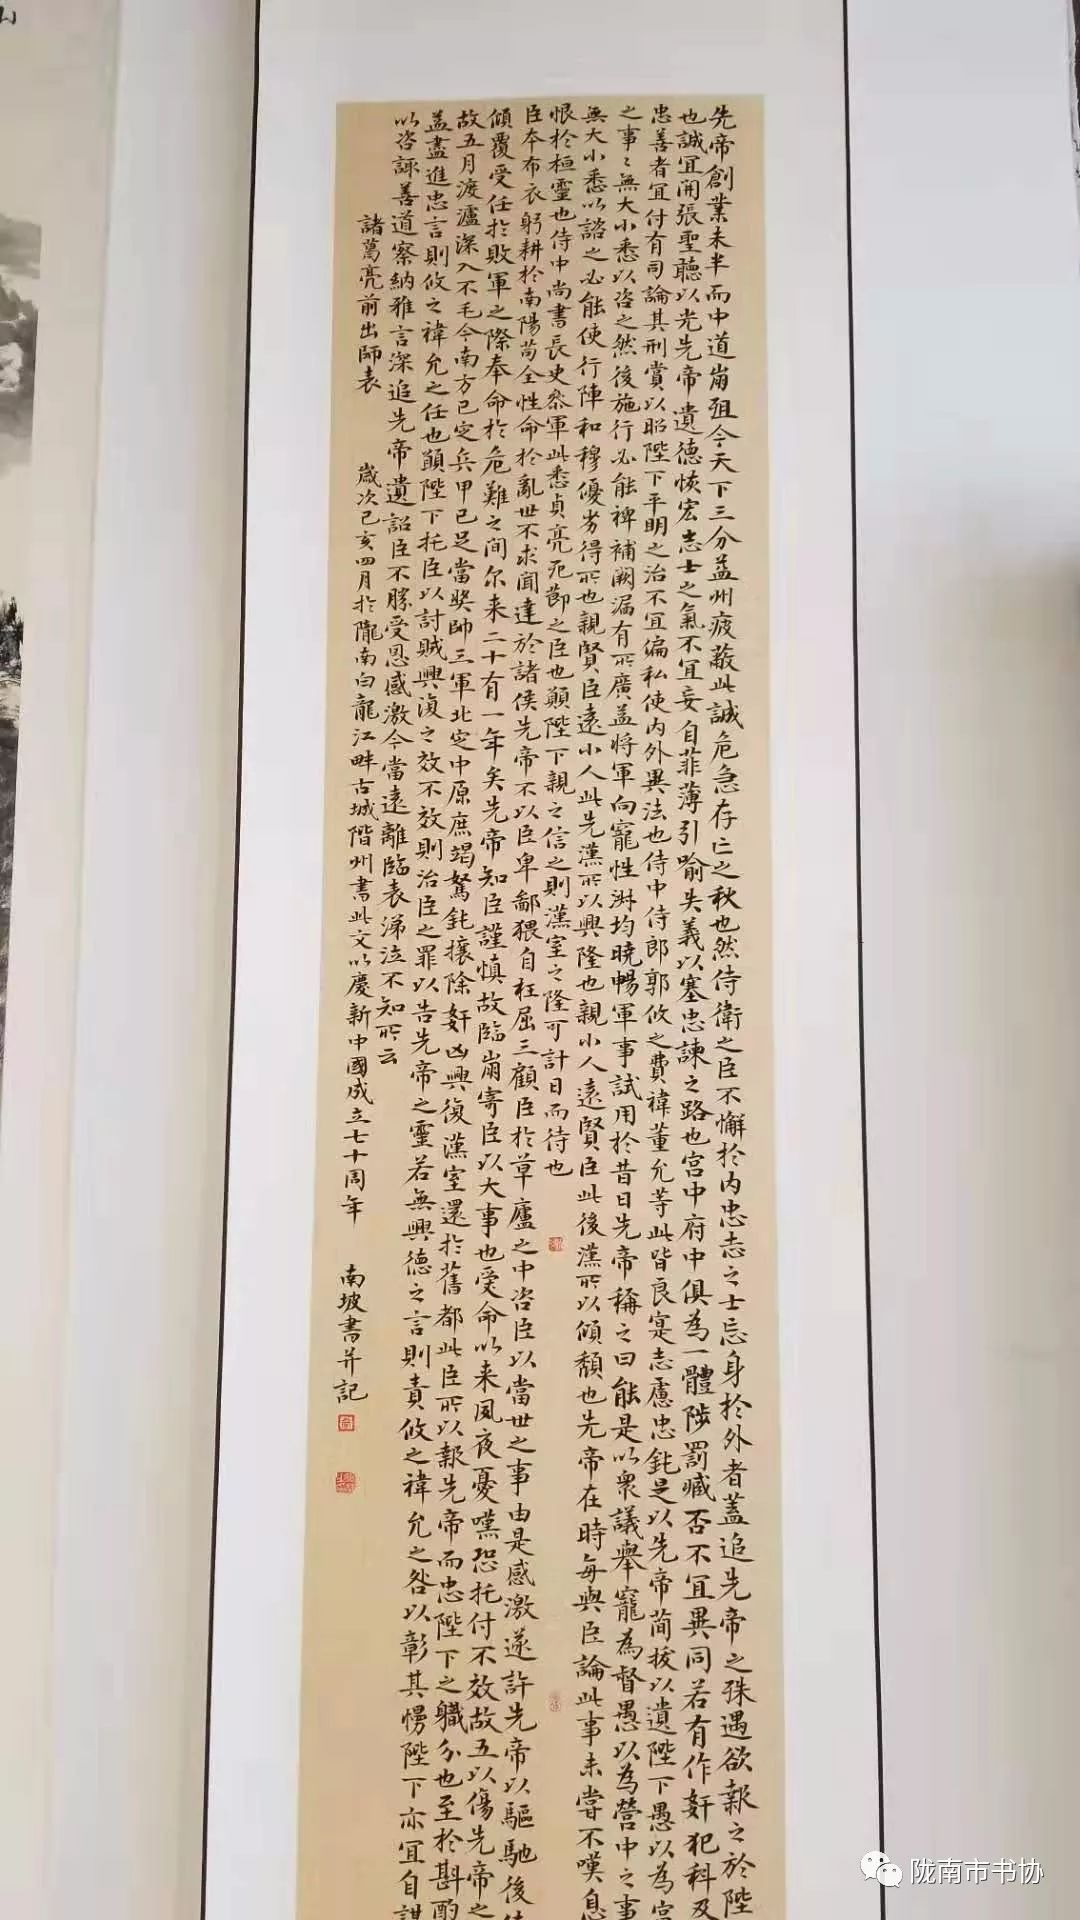 先帝創業未半而中道崩殂今天下三分益州疲蔽此誠危急存亡之秋也然侍衛之臣不懈於内忠志之士忘身於外者蓋追先帝之殊遇欲報之於陛
也誠宜開張聖聽以光先帝遺德恢宏志士之氣不宜妄自菲薄引喻失義以塞忠諫之路也宫中府中俱為一體陟罰臧否不宜異同若有作奸犯科及
忠善者宜付有司論其刑賞以昭陛下平明之治不宜偏私使内外異法也侍中侍郎郭攸之費禕董允等此皆良寔志慮忠鈍是以先帝简拔以遺陛下愚以為宫
之事々無大小悉以咨之然後施行必能裨補闕漏有所廣益将軍向寵性淑均曉暢軍事試用於昔日先帝稱之曰能是以衆議舉寵為督愚以為營中之事
無大小悉以諮之必能使行陣和穆優劣得所也親賢臣遠小人此先漢所以興隆也親小人遠賢臣此後漢所以傾頹也先帝在時每與臣論此事未嘗不嘆息
恨於桓靈也侍中尚書長史叅軍此悉貞亮死節之臣也願陛下親之信之則漢室之隆可計日而待也
臣本布衣躬耕於南陽苟全性命於亂世不求聞達於諸侯先帝不以臣卑鄙猥自枉屈三顧臣於草廬之中咨臣以當世之事由是感激遂許先帝以驅馳後
傾覆受任於敗軍之際奉命於危難之间尔来二十有一年矣先帝知臣謹慎故臨崩寄臣以大事也受命以来夙夜憂嘆恐托付不效故五以傷先帝之
故五月渡瀘深入不毛今南方已定兵甲已足當奖帥三軍北定中原庶竭駑鈍攘除奸凶興復漢室還於舊都此臣所以報先帝而忠陛下之職分也至於斟酌
益盡進忠言則攸之禕允之任也願陛下托臣以討賊興復之效不效則治臣之罪以告先帝之靈若無興德之言則責攸之禕允之咎以彰其慢陛下亦宜自謀
以咨諏善道察納雅言深追先帝遺詔臣不勝受恩感激今當遠離臨表涕泣不知所云
諸葛亮前出師表 歲次己亥四月於隴南白龍江畔古城階州書此文以慶新中國成立七十周年 南坡書并記
陇南市书协